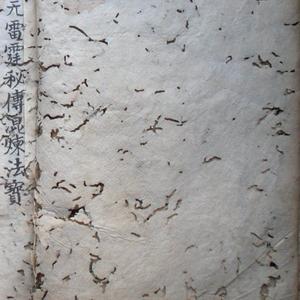 元雷霆秘傳混煉法寶